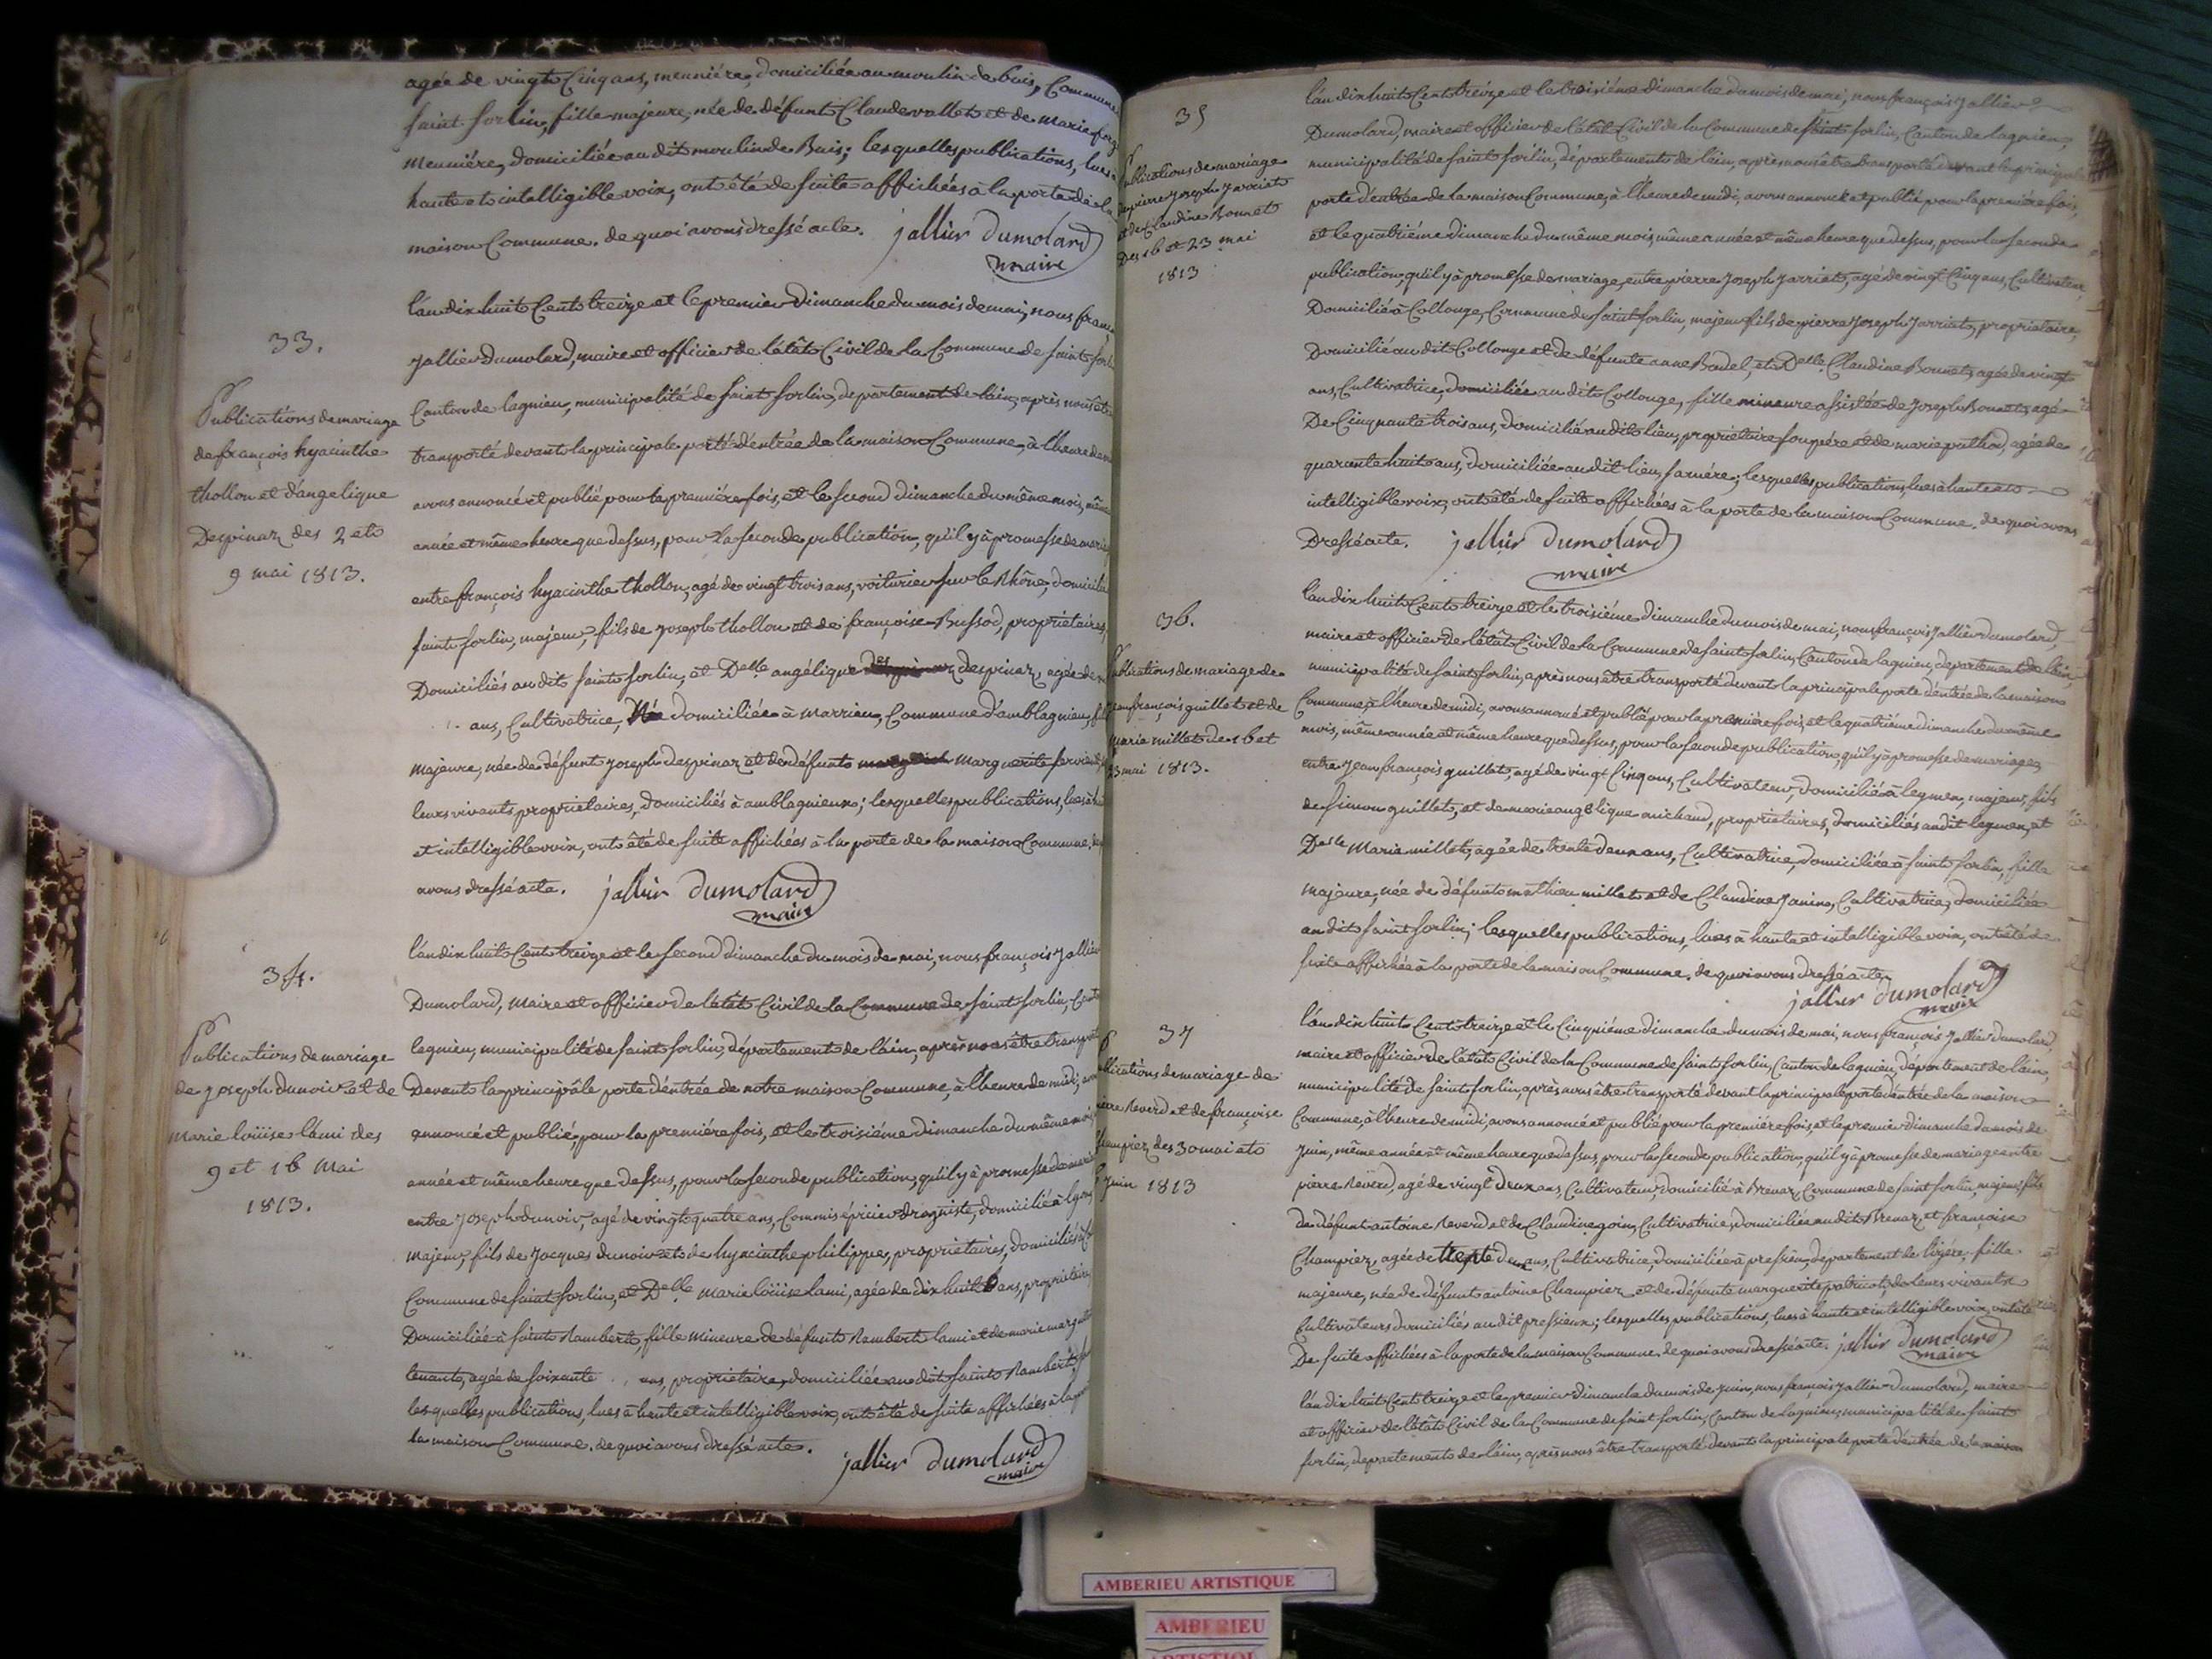 agée de vingt Cinq ans, meuniére, domiciliée au moulin de buis, Commune
saint sorlin, fille majeure, née de défunt Claude vallet et de marie
meuniére, domiciliée au dit moulin de Buis; lesquelles publications, lues
haute et intelligible voix, ont été de suite affichées à la porte de la
maison Commune. de quoi avons dressé acte. jallier Dumolard
maire
33.
Publications de mariage
de françois hyacinthe
thollon et d'angelique
Despinaz des 2 et
9 mai 1813.
l'an dix huit Cent treize et le premier dimanche du mois de mai, nous
jallier Dumolard, maire et officier de l'état Civil de la Commune de saint
Canton de lagnieu, municipalité de saint sorlin, departement de l'ain, après nous
transporté devant la principale porte d'entrée de la maison Commune, à l'heure de
avons annoncé et publié pour la premiére fois, et le second dimanche du même mois, même
année et même heure que dessus, pour la seconde publication, qu'il y à promesse de
entre françois hyacinthe thollon, agé de vingt trois ans, voiturier sur le Rhône, domicilié
saint sorlin, majeur, fils de joseph thollon et de françoise Bussod, propriétaires,
Domiciliés au dit saint sorlin, et Delle angélique despinaz, agée de
ans, Cultivatrice, domiciliée à marrieu, Commune d'amblagnieu,
majeure, née de défunt joseph despinaz et de défunte marguerite
leurs vivants propriétaires, domiciliés à amblagnieux; lesquelles publications, lues à
et intelligible voix, ont été de suite affichées à la porte de la maison Commune.
avons dressé acte. jallier Dumolard
maire
34.
Publications de mariage
de joseph dunoir et de
marie loüise lami des
9 et 16 mai
1813.
l'an dix huit Cent treize et le second dimanche du mois de mai, nous françois jallier
Dumolard, maire et officier de l'état Civil de la Commune de saint sorlin,
lagnieu, municipalité de saint sorlin, département de l'ain, après nous être
Devant la principale porte d'entrée de notre maison Commune, à l'heure de midi,
annoncé et publié, pour la premiére fois, et le troisiéme dimanche du même mois
année et même heure que dessus, pour la seconde publication, qu'il y à promesse de
entre joseph dunoir, agé de vingt quatre ans, Commis épicier droguiste, domicilié à lyon,
majeur, fils de jacques dunoir et de hyacinthe philippe, propriétaires, domiciliés
Commune de saint sorlin, et Delle marie loüise lami, agée de dix huit ans, propriétaire,
Domiciliée à saint Rambert, fille mineure de défunt Rambert lami et de marie
tenant, agée de soixante ans, propriétaire, domiciliée au dit saint Rambert,
lesquelles publications, lues à haute et intelligible voix, ont été de suite affichées à la
la maison Commune. de quoi avons dressé acte.
jallier Dumolard
maire
35
Publications de mariage
de pierre joseph jarriat
et de Claudine Bonnet
Des 16 et 23 mai
1813
l'an dix huit Cent treize et le troisiéme dimanche du mois de mai, nous françois jallier
Dumolard, maire et officier de l'état Civil de la Commune de saint sorlin, Canton de lagnieu,
municipalité de saint sorlin, département de l'ain, après nous être transporté devant la principale
porte d'entrée de la maison Commune, à l'heure de midi, avons annoncé et publié pour la premiére fois,
et le quatriéme dimanche du même mois, même année et même heure que dessus, pour la seconde
publication, qu'il y à promesse de mariage, entre pierre joseph jarriat, agé de vingt Cinq ans, Cultivateur,
Domicilié à Collonge, Commune de saint sorlin, majeur, fils de pierre joseph jarriat, propriétaire,
Domicilié au dit Collonge et de défunte anne Badel, et Delle Claudine Bonnet, agée de vingt
ans, Cultivatrice, domiciliée au dit Collonge, fille mineure assistée de joseph Bonnet, agé
De Cinquante trois ans, domicilié au dit lieu, propriétaire son pére et de marie pathod, agée de
quarante huit ans, domiciliée au dit lieu, sa mére; lesquelles publications, lues à haute et
intelligible voix, ont été de suite affichées à la porte de la maison Commune. de quoi avons
Dressé acte. jallier Dumolard
maire
36.
Publications de mariage de
jean françois guillet et de
marie millet des 16 et
23 mai 1813.
l'an dix huit Cent treize et le troisiéme dimanche du mois de mai, nous françois jallier Dumolard,
maire et officier de l'état Civil de la Commune de saint sorlin, Canton de lagnieu, departement de l'ain,
municipalité de saint sorlin, après nous être transporté devant la principale porte d'entrée de la maison
Commune, à l'heure de midi, avons annoncé et publié pour la premiére fois, et le quatriéme dimanche du même
mois, même année et même heure que dessus, pour la seconde publication, qu'il y à promesse de mariage,
entre jean françois guillet, agé de vingt Cinq ans, Cultivateur, domicilié à leymen, majeur, fils
de simon guillet, et de marie angélique michaud, propriétaires, domiciliés au dit leymen, et
Delle Marie millet, agée de trente deux ans, Cultivatrice, domiciliée à saint sorlin, fille
majeure, née de défunt mathieu millet et de Claudine janin, Cultivatrice, domiciliée
au dit saint sorlin; lesquelles publications, lues à haute et intelligible voix, ont été de
suite affichées à la porte de la maison Commune. de quoi avons dressé acte.
jallier Dumolard
maire
37
Publications de mariage de
pierre Reverd et de françoise
Champier, des 30 mai et
6 juin 1813
l'an dix huit Cent treize et le Cinquiéme dimanche du mois de mai, nous françois jallier Dumolard,
maire et officier de l'état Civil de la Commune de saint sorlin, Canton de lagnieu, département de l'ain,
municipalité de saint sorlin, après nous être transporté devant la principale porte d'entrée de la maison
Commune, à l'heure de midi, avons annoncé et publié pour la premiére fois, et le premier dimanche du mois de
juin, même année et même heure que dessus, pour la seconde publication, qu'il y à promesse de mariage entre
pierre Reverd, agé de vingt deux ans, Cultivateur, domicilié à Brenaz, Commune de saint sorlin, majeur, fils
de défunt antoine Reverd et de Claudine goin, Cultivatrice, domiciliée au dit Brenaz, et françoise
Champier, agée de trente deux ans, Cultivatrice, domiciliée à pressieu, departement de l'isére, fille
majeure, née de défunt antoine Champier et de défunte marguerite patricot, de leurs vivants
Cultivateurs domiciliés au dit pressieux; lesquelles publications, lues à haute et intelligible voix, ont été
De suite affichées à la porte de la maison Commune. de quoi avons dressé acte. jallier Dumolard
maire
l'an dix huit Cent treize et le premier dimanche du mois de juin, nous françois jallier Dumolard, maire
et officier de l'état Civil de la Commune de saint sorlin, Canton de lagnieu, municipalité de saint
sorlin, departement de l'ain, après nous être transporté devant la principale porte d'entrée de la maison
AMBERIEU ARTISTIQUE
AMBERIEU
ARTISTIQUE